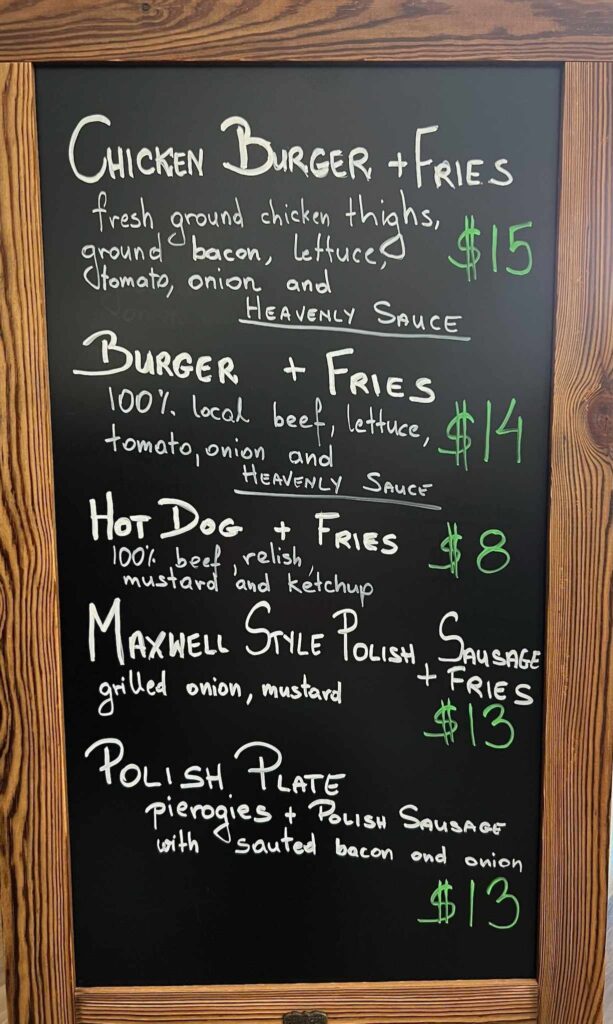 CHICKEN BURGER + FRIES
fresh ground chicken thighs,
ground bacon, lettuce,
tomato, onion and
$15
HEAVENLY SAUCE
BURGER + FRIES
100% local beef, lettuce,
tomato, onion and
$14
HEAVENLY SAUCE
HOT DOG + FRIES
100% beef, relish,
mustard and ketchup
$8
MAXWELL STYLE POLISH SAUSAGE
+ FRIES
grilled onion, mustard
$13
POLISH PLATE
pierogies + POLISH SAUSAGE
with sauted bacon and onion
$13